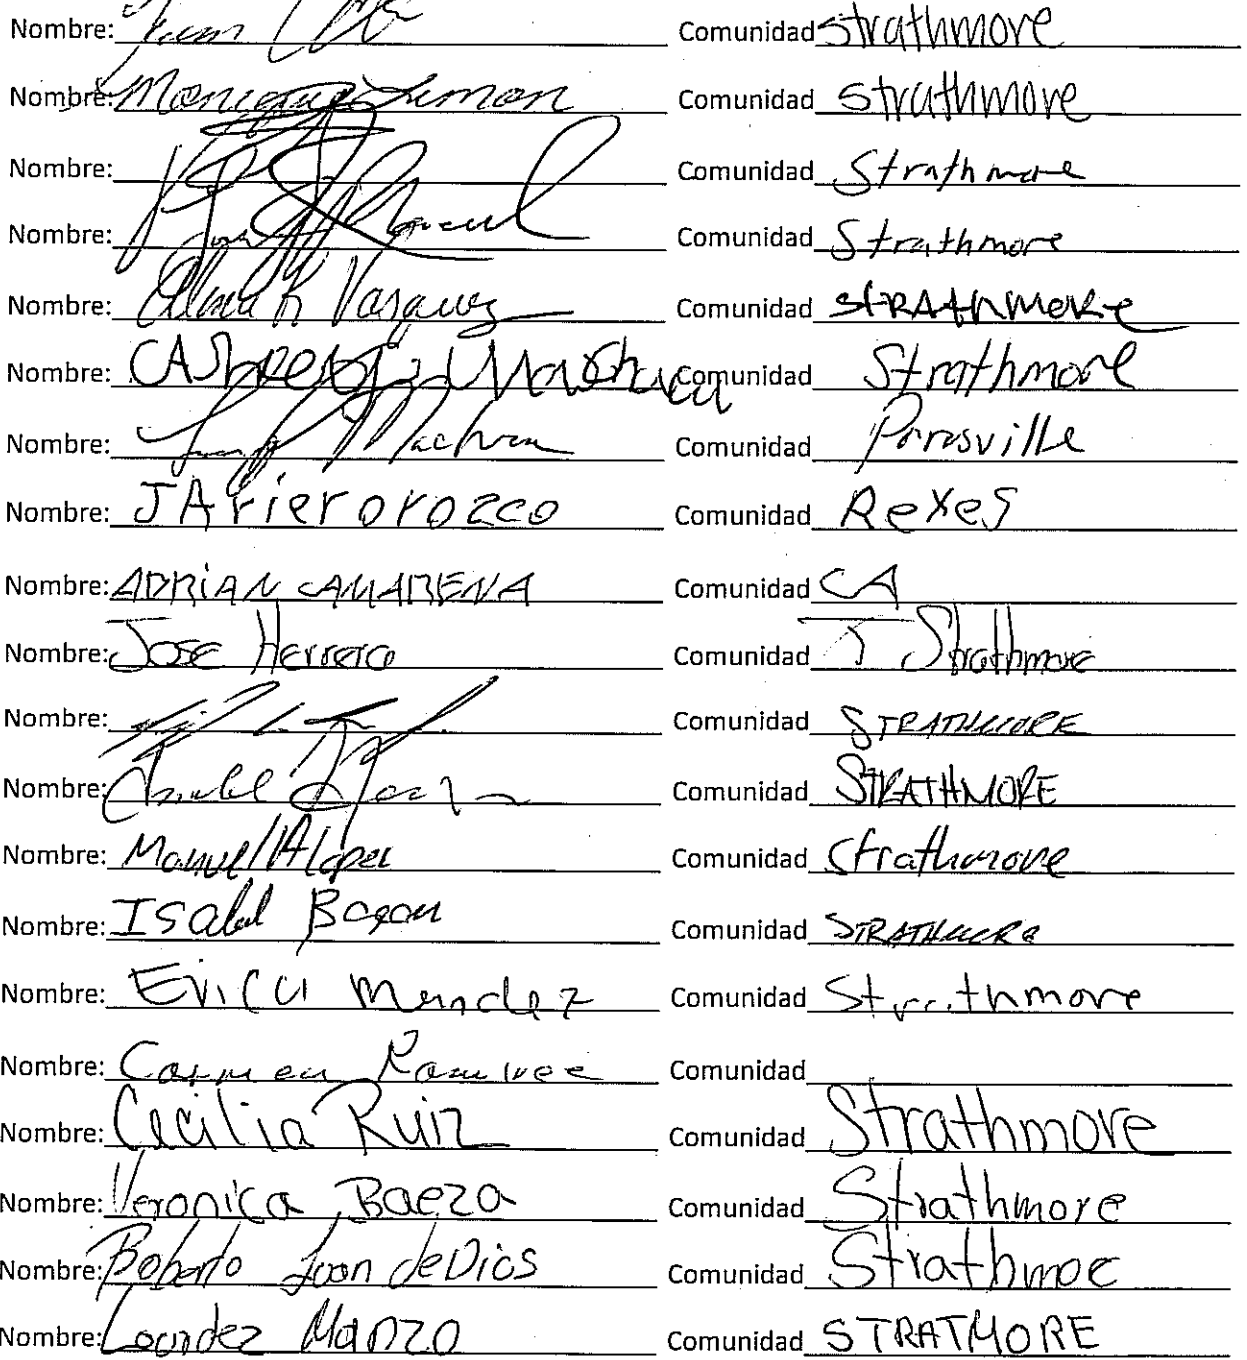 Nombre: Comunidad Strathmore
Nombre: Monique Lemon Comunidad Strathmore
Nombre: Comunidad Strathmore
Nombre: Comunidad Strathmore
Nombre: Vasquez Comunidad STRAthMORe
Nombre: Comunidad Strathmore
Nombre: Comunidad
Nombre: JAvier orozco Comunidad Rexes
Nombre: ADRiAN CAMARENA Comunidad CA
Nombre: Jose Herrera Comunidad Strathmore
Nombre: Comunidad STRATHMORE
Nombre: Comunidad STRATHMORE
Nombre: Manuel Lopez Comunidad Strathmore
Nombre: Isabel Comunidad STRATHMORE
Nombre: Erica Mendez Comunidad Strathmore
Nombre: Carmen Ramirez Comunidad
Nombre: Cecilia Ruiz Comunidad Strathmore
Nombre: Veronica Baeza Comunidad Strathmore
Nombre: Roberto Juan de Dios Comunidad Strathmoe
Nombre: Lourdez Manzo Comunidad STRATMORE